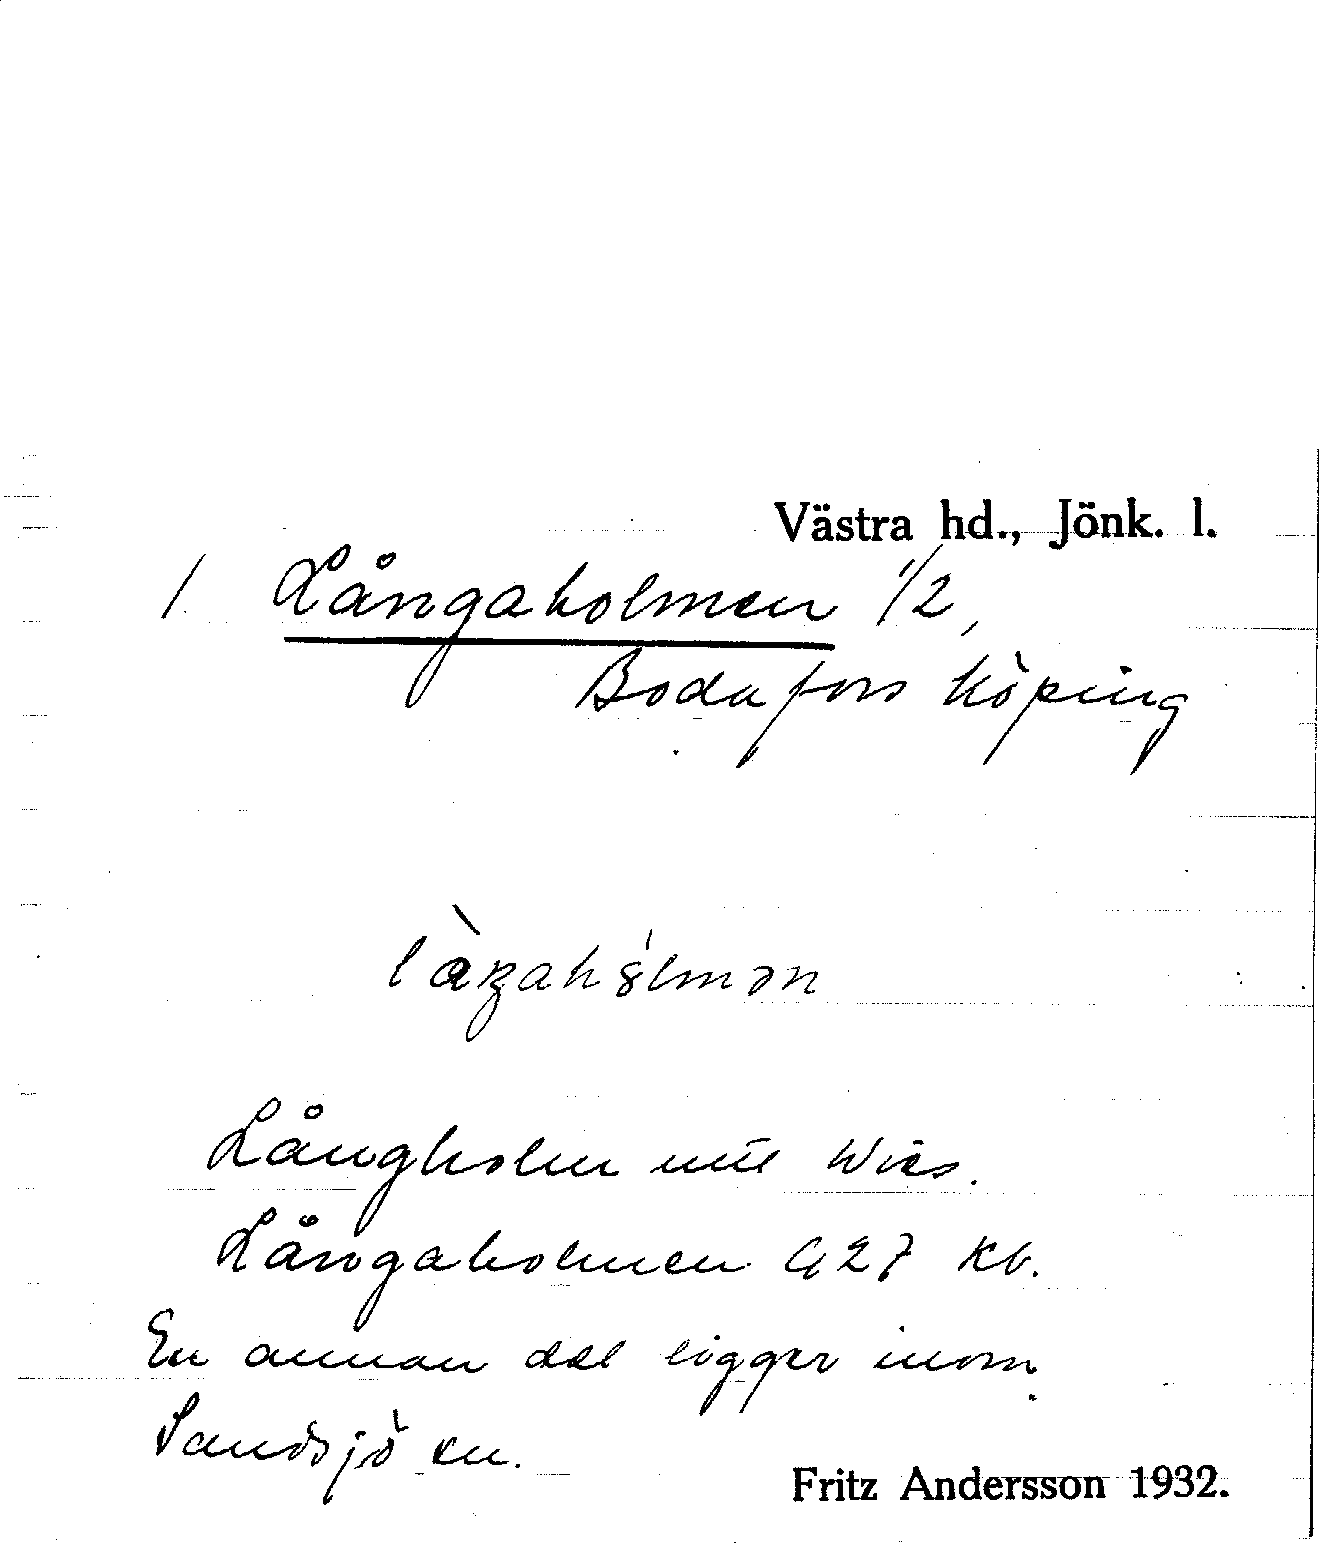 Västra hd., Jönk. l.
1 Långaholmen 1/2,
Bodafors köping
Långholm mtl Wies.
Långaholmen G27 Kb.
En annan del ligger inom
Sandsjö sn.
Fritz Andersson 1932.